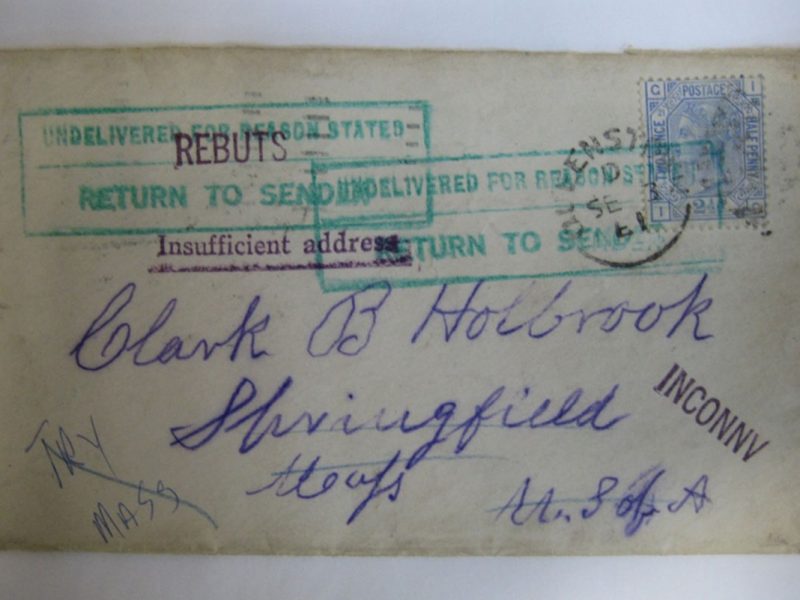 UNDELIVERED FOR REASON STATED
REBUTS
RETURN TO SENDER
UNDELIVERED FOR REASON
RETURN TO SENDER
Insufficient address
G I
POSTAGE
HALF PENNY
I 2½
SE
Clark B Holbrook
Springfield
Mass
U.S of A
TRY
MASS
INCONNV